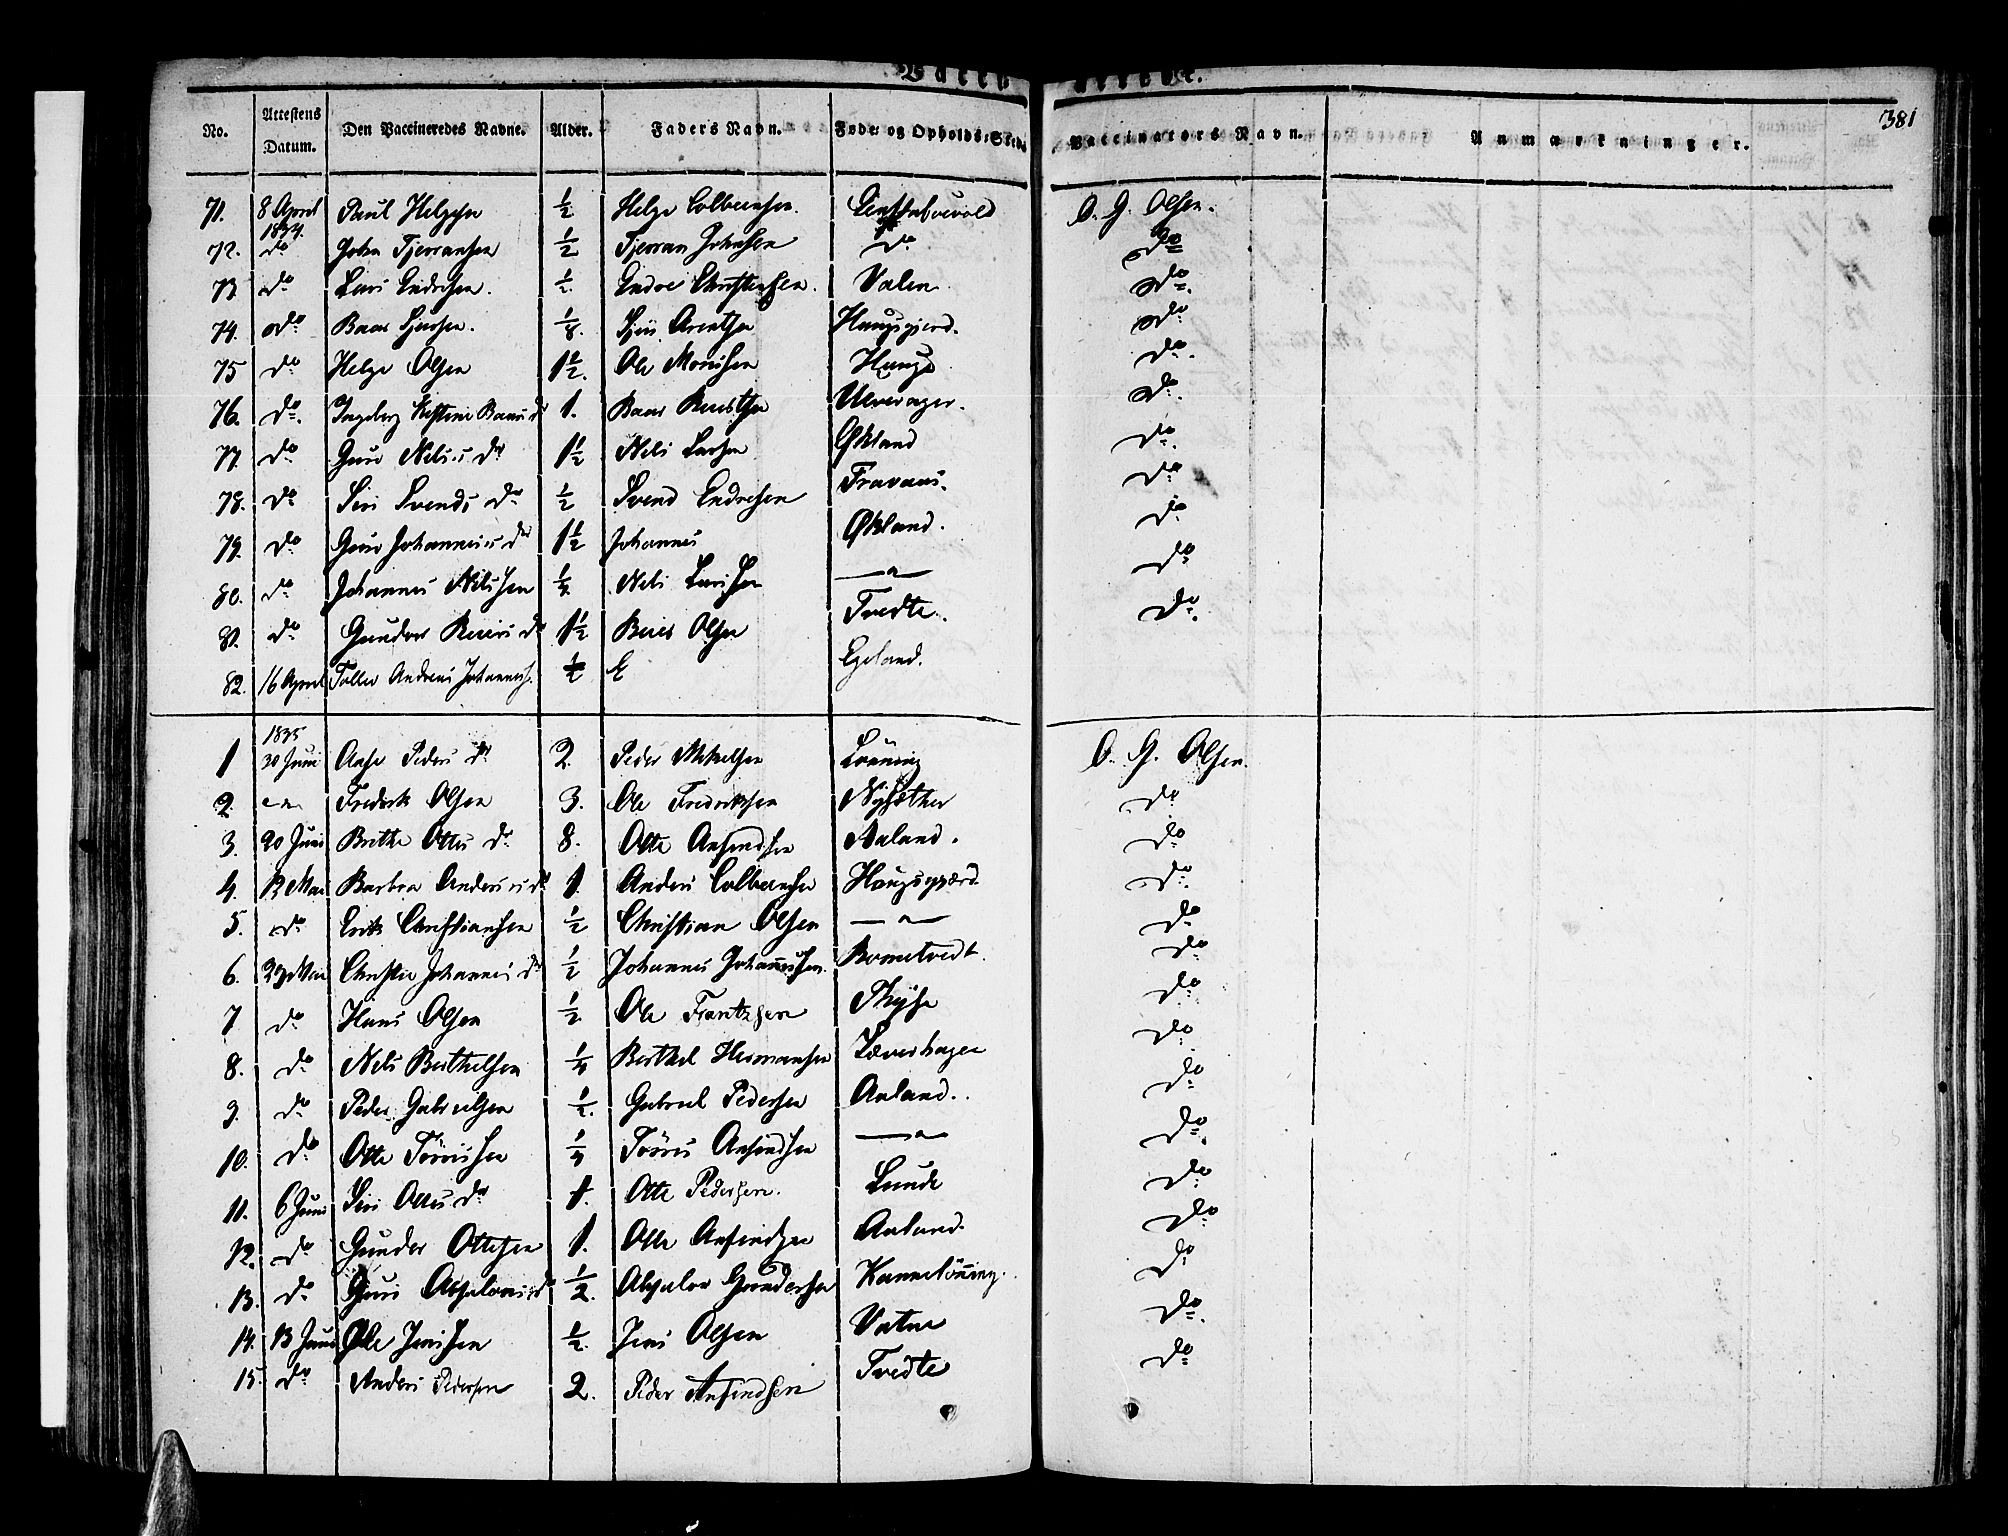 381
No. Attestens Datum. Den Vaccineredes Navne. Alder. Faders Navn. Føde- og Opholds-Sted Vaccinators Navn. Anmærkninger.
71. 8 April 1834. Paul Helgesen ½ Helge Colbeensen. O. G. Olsen.
72. do John Tjerransen ½ Tjerran Johnsen do do
73 do Lars Endresen. ½ Endre Christensen. Valen do
74. do Baar Sjursen. 1/8. Arentsen Haugsgjerd. do
75 do Helge Olsen 1½. Ole Monsen Hauge do.
76. do. Ingeborg Kistine Baars dr 1. Baar Ulverager. do.
77. do Guro Nels dr 1½ Nels Larsen Økland do.
78. do Siri Svends dr ½ Svend Endresen do
79. do Guro Johannes dr 1½ Johannes Økland. do
80. do Johannes Nelssen ¼ Nels Larssen —„— do
81. do dr 1½ Olsen Tvedte. do.
82. 16 April Tollev Andreas Johanness. ½ E Egeland.
1 1835 30 Juni Peders dr 2. Peder Mikkelsen Lønning O. G. Olsen.
2 —„— Frederik Olsen 3. Ole Fredriksen Nysæther do
3. 20 Juni Brithe Ottes dr 8. Otte Ansindsen Aaland. do
4. 12 Mai Barbra Anders dr 1. Anders Colbeensen Haugsgjærd do
5. do Erik Christiansen ½ Christian Olsen —„— do
6. 29 Mai Johannes dr ½ Johannes Johannessen. Bometvedt. do
7 do Hans Olsen ½ Ole Frantzsen do
8. do Nels Berthelsen ¼ Berthel Hermansen do
9. do Peder Gabrielsen ½. Gabriel Pedersen Aaland.. do
10. do Otte Tørrissen ¼ Tørris Ansindsen —„— do.
11. 6 Juni Siri Ottes dr 1. Otte Pedersen. Lunde do
12. do Gunder Ottesen 1. Otte Ansindsen Aaland. do
13. do Guri Absalons dr ½. Absalon Gundersen Kannelönning. do
14. 13 Juni Ole Jenssen ½. Jens Olsen Vatne do.
15. do Anders Pedersen 2. Peder Ansindsen Tvedte do